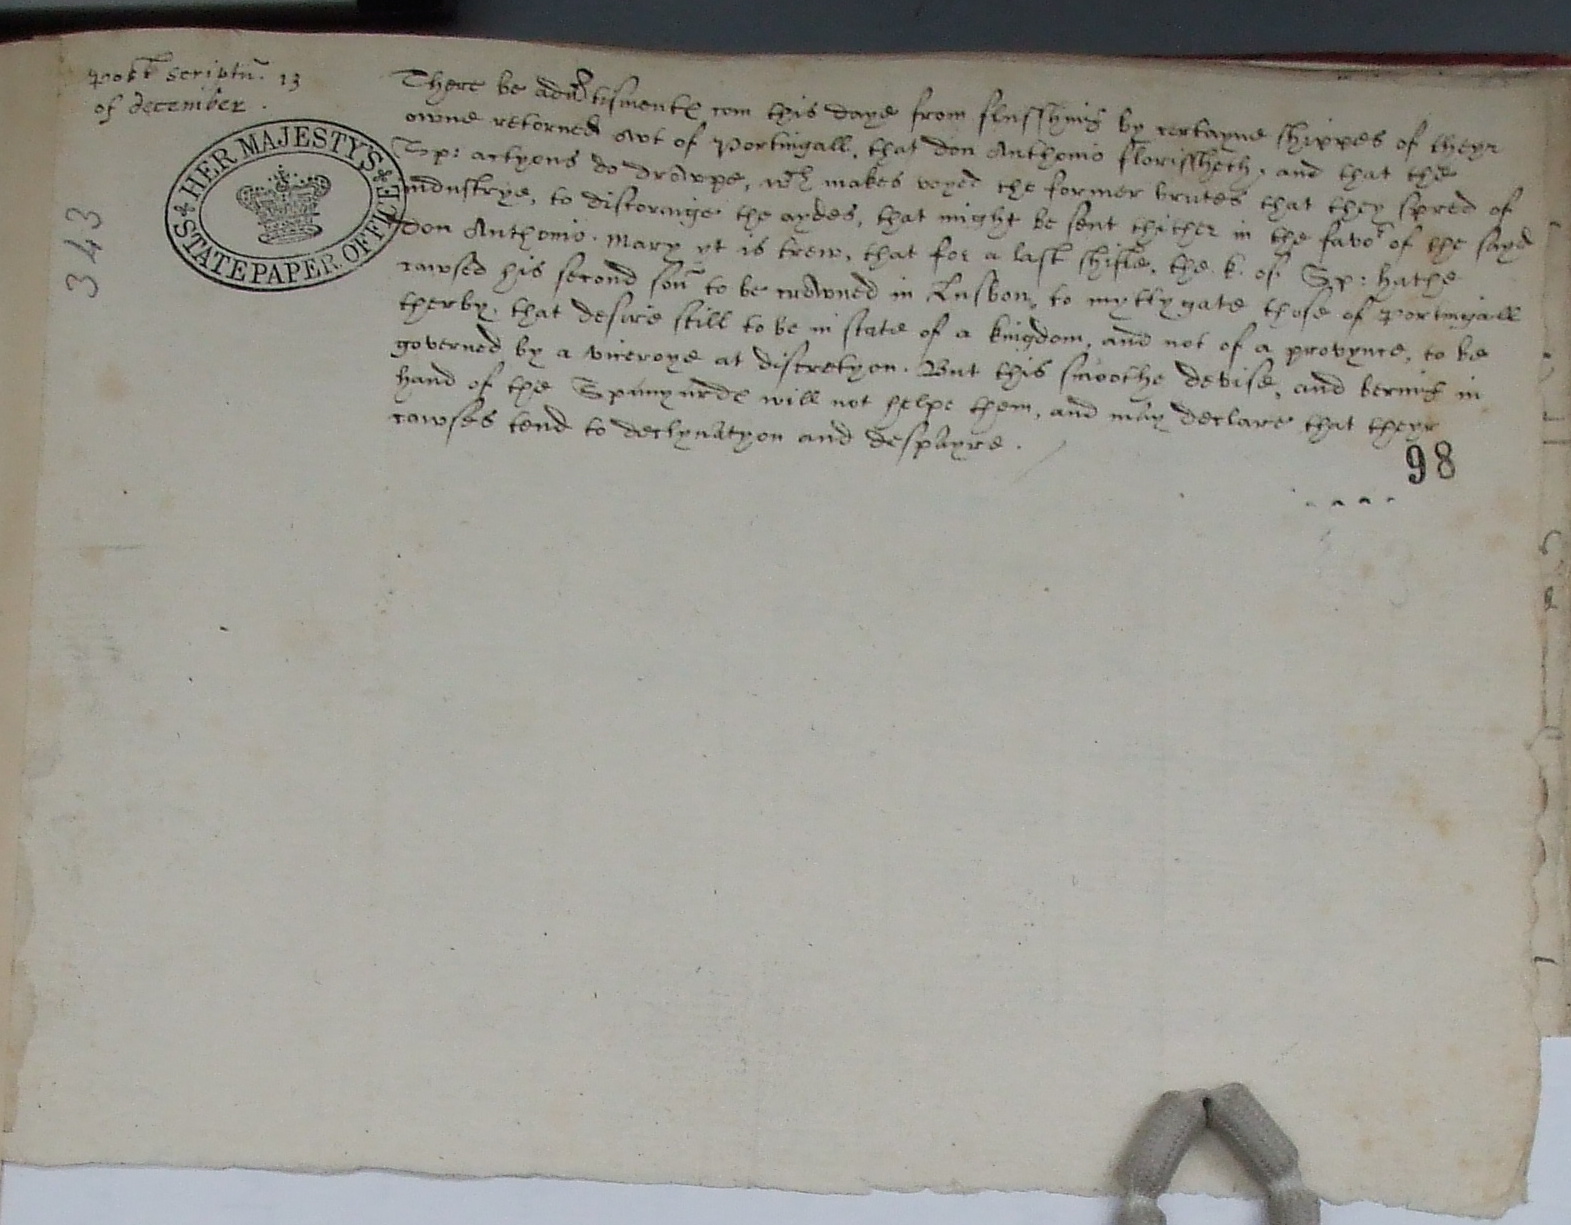 post scriptū. 13
of december.
There be advtisments com this daye from flusshing by certayne shippes of theyr
owne retorned owt of Portingall, that don Anthonio florissheth, and that the
Sp: actyons do drowpe, wch makes voyed the former brutes that they spred of
industrye, to discoraige the aydes, that might be sent thither in the favor of the sayd
don Anthonio. Mary yt is trew, that for a last shifte, the k. of Sp: hathe
cawsed his second son to be crowned in Lusbon, to myttygate those of Portingall
therby, that desire still to be in state of a kingdom, and not of a provynce, to be
governed by a viceroye at discretyon. But this smoothe devise, and being in
hand of the Spanyards will not helpe them, and may declare that theyr
cawses tend to declynatyon and despayre.
HER MAJESTY'S
STATE PAPER OFFICE
343
98